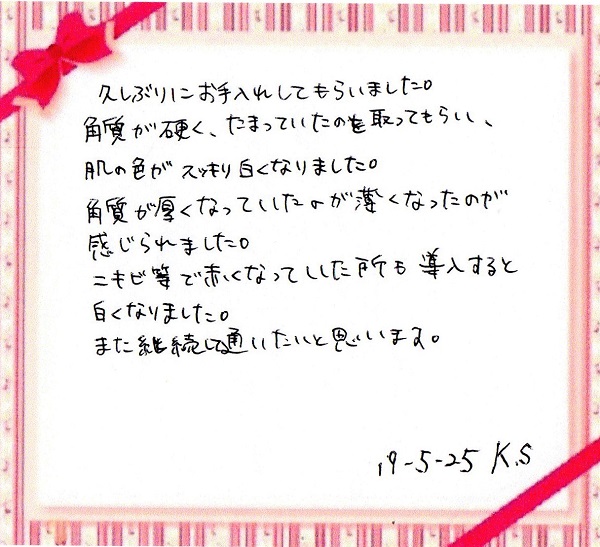 久しぶりにお手入れしてもらいました。
角質が硬く、たまっていたのを取ってもらい、
肌の色がスッキリ白くなりました。
角質が厚くなっていたのが薄くなったのが
感じられました。
ニキビ等で赤くなっていた所も導入すると
白くなりました。
また継続して通いたいと思います。
19-5-25 K.S